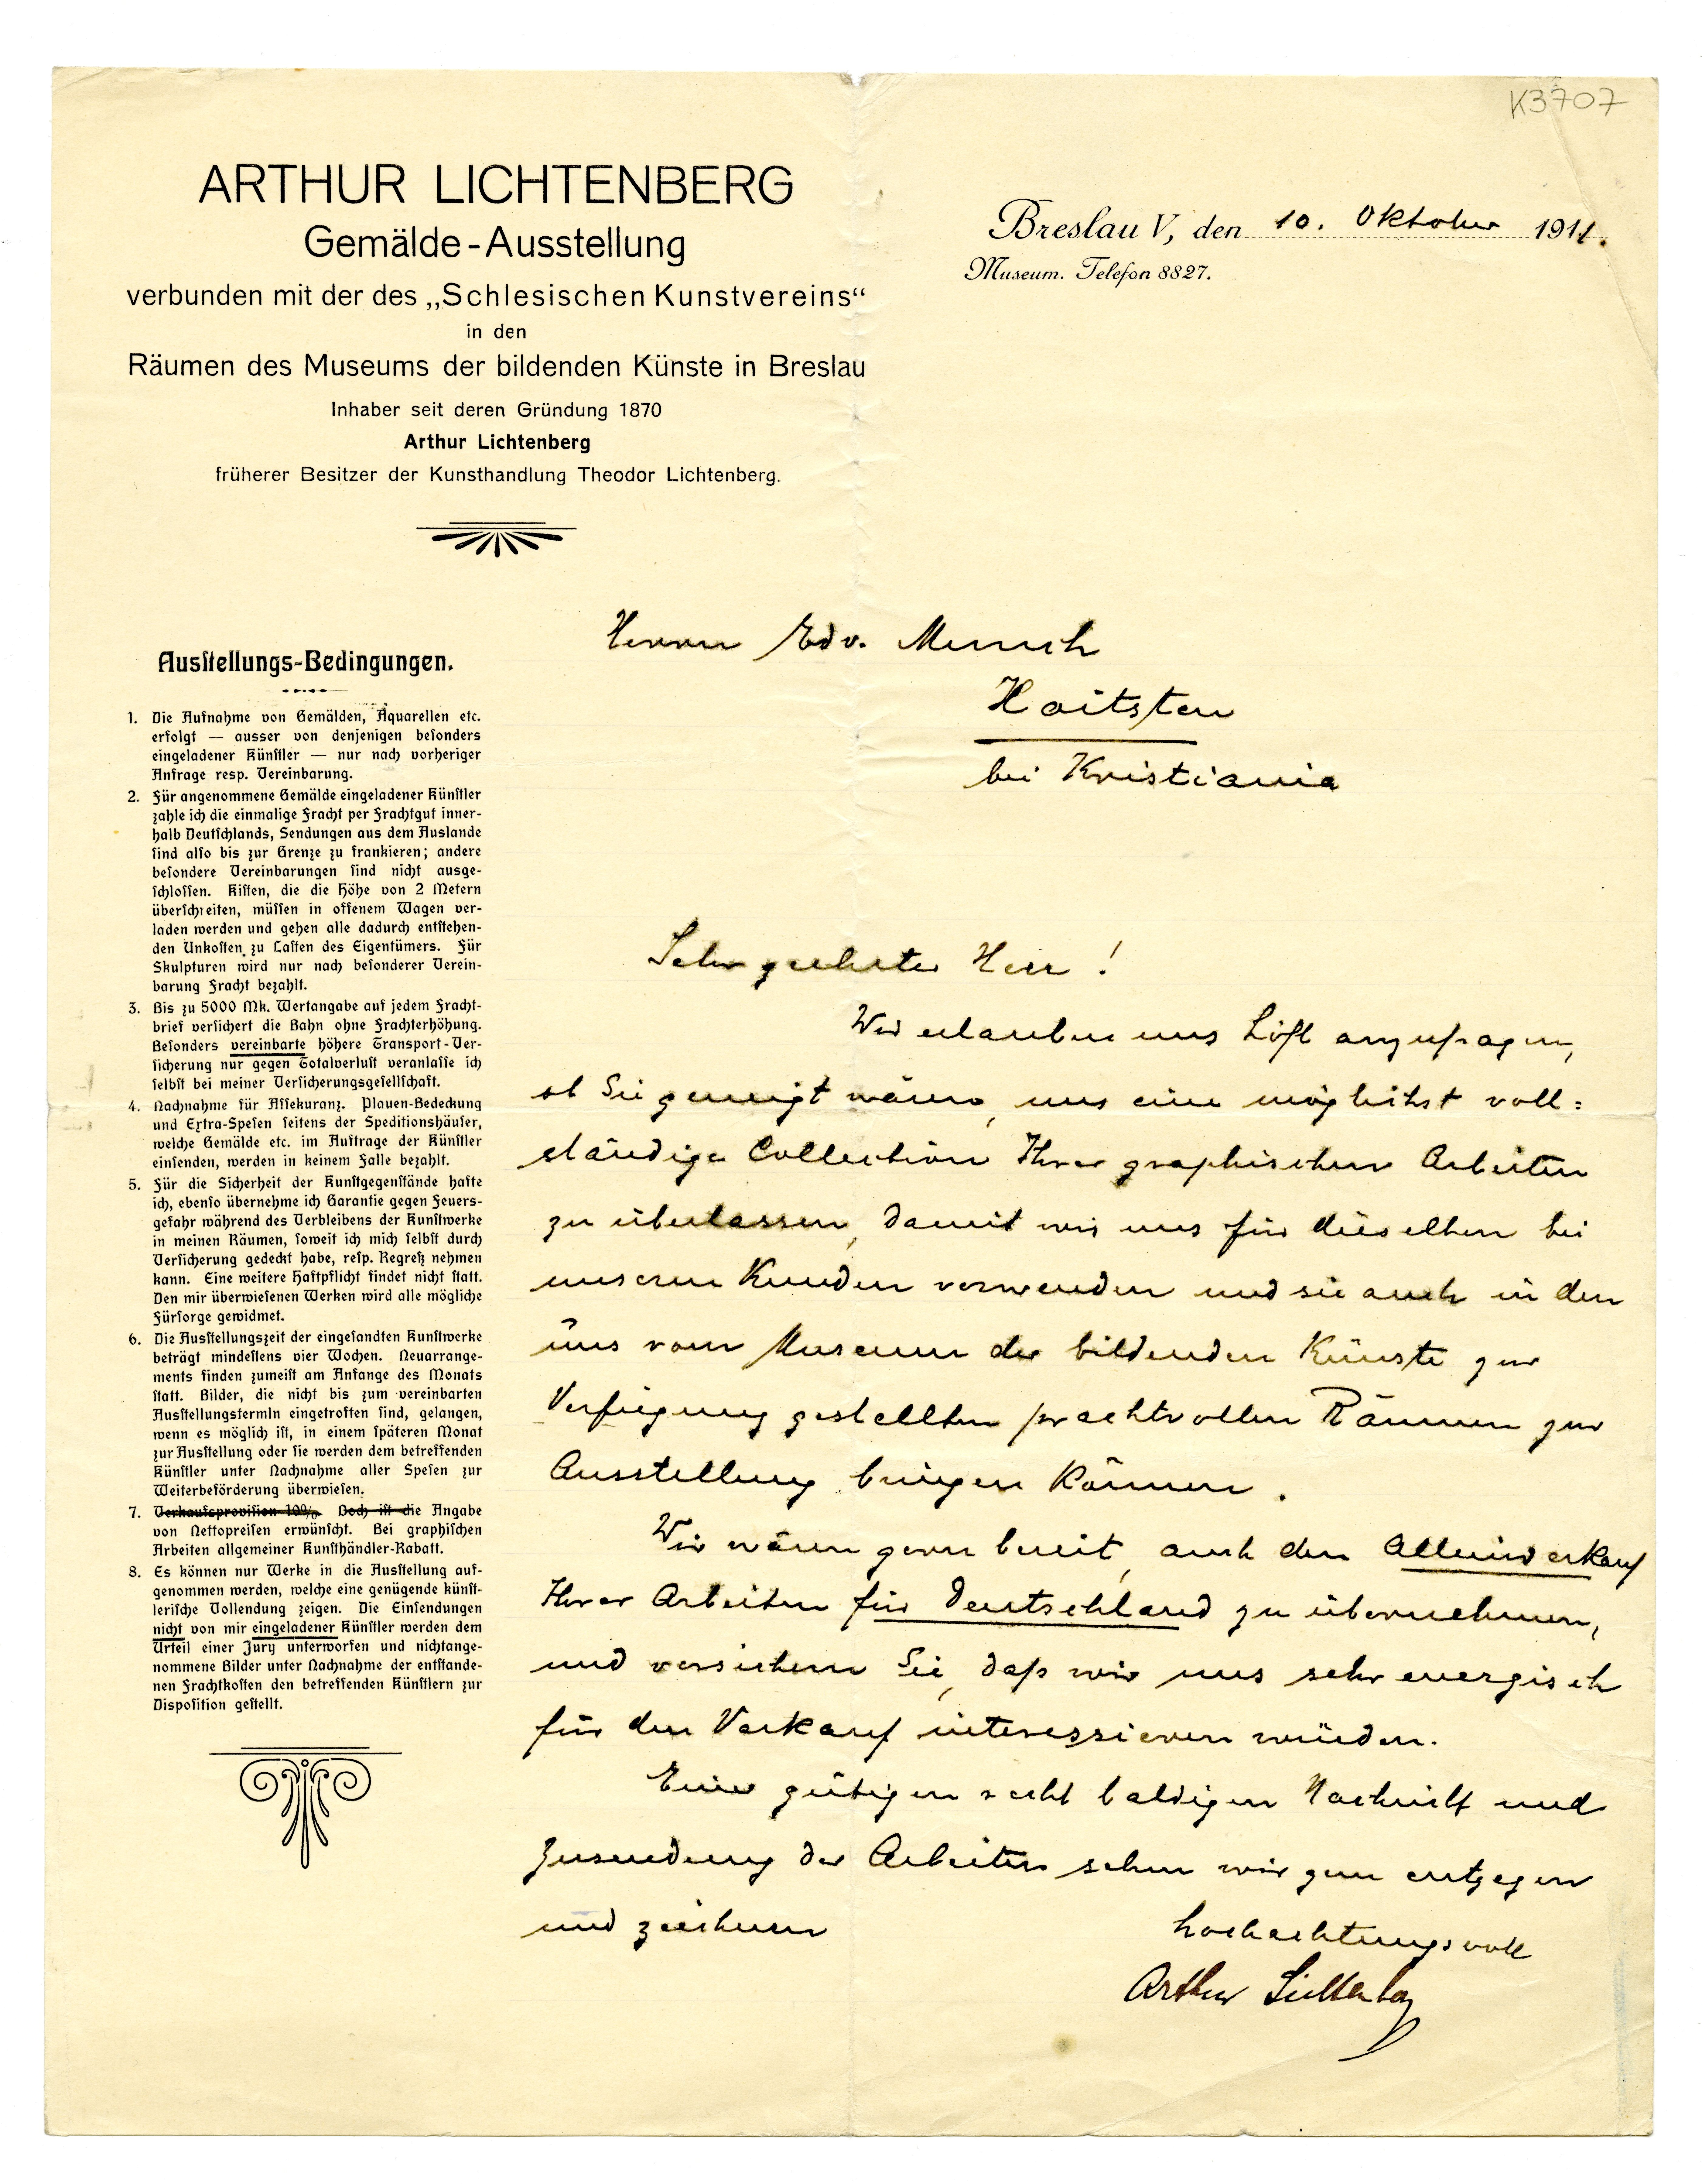 K3707
ARTHUR LICHTENBERG
Gemälde-Ausstellung
verbunden mit der des „Schlesischen Kunstvereins“
in den
Räumen des Museums der bildenden Künste in Breslau
Inhaber seit deren Gründung 1870
Arthur Lichtenberg
früherer Besitzer der Kunsthandlung Theodor Lichtenberg.
Breslau V, den 10. Oktober 1911.
Museum. Telefon 8827.
Ausstellungs-Bedingungen.
1. Die Aufnahme von Gemälden, Aquarellen etc.
erfolgt — ausser von denjenigen besonders
eingeladener Künstler — nur nach vorheriger
Anfrage resp. Vereinbarung.
2. Für angenommene Gemälde eingeladener Künstler
zahle ich die einmalige Fracht per Frachtgut inner-
halb Deutschlands, Sendungen aus dem Auslande
sind also bis zur Grenze zu frankieren; andere
besondere Vereinbarungen sind nicht ausge-
schlossen. Kisten, die die Höhe von 2 Metern
überschreiten, müssen in offenem Wagen ver-
laden werden und gehen alle dadurch entstehen-
den Unkosten zu Lasten des Eigentümers. Für
Skulpturen wird nur nach besonderer Verein-
barung Fracht bezahlt.
3. Bis zu 5000 Mk. Wertangabe auf jedem Fracht-
brief versichert die Bahn ohne Frachterhöhung.
Besonders vereinbarte höhere Transport-Ver-
sicherung nur gegen Totalverlust veranlasse ich
selbst bei meiner Versicherungsgesellschaft.
4. Nachnahme für Assekuranz. Plauen-Bedeckung
und Extra-Spesen seitens der Speditionshäuser,
welche Gemälde etc. im Auftrage der Künstler
einsenden, werden in keinem Falle bezahlt.
5. Für die Sicherheit der Kunstgegenstände hafte
ich, ebenso übernehme ich Garantie gegen Feuers-
gefahr während des Verbleibens der Kunstwerke
in meinen Räumen, soweit ich mich selbst durch
Versicherung gedeckt habe, resp. Regreß nehmen
kann. Eine weitere Haftpflicht findet nicht statt.
Den mir überwiesenen Werken wird alle mögliche
Fürsorge gewidmet.
6. Die Ausstellungszeit der eingesandten Kunstwerke
beträgt mindestens vier Wochen. Neuarrange-
ments finden zumeist am Anfange des Monats
statt. Bilder, die nicht bis zum vereinbarten
Ausstellungstermin eingetroffen sind, gelangen,
wenn es möglich ist, in einem späteren Monat
zur Ausstellung oder sie werden dem betreffenden
Künstler unter Nachnahme aller Spesen zur
Weiterbeförderung überwiesen.
7. Verkaufsprovision 10%. Doch ist die Angabe
von Nettopreisen erwünscht. Bei graphischen
Arbeiten allgemeiner Kunsthändler-Rabatt.
8. Es können nur Werke in die Ausstellung auf-
genommen werden, welche eine genügende künst-
lerische Vollendung zeigen. Die Einsendungen
nicht von mir eingeladener Künstler werden dem
Urteil einer Jury unterworfen und nichtange-
nommene Bilder unter Nachnahme der entstande-
nen Frachtkosten den betreffenden Künstlern zur
Disposition gestellt.
Herrn Edv. Munch
Hvitsten
bei Kristiania
Sehr geehrter Herr!
Wir erlauben uns höfl anzufragen,
ob Sie geneigt wären, uns eine möglichst voll=
ständige Collection Ihrer graphischen Arbeiten
zu überlassen, damit wir uns für dieselben bei
unseren Kunden verwenden und sie auch in den
uns vom Museum der bildenden Künste zur
Verfügung gestellten prachtvollen Räumen zur
Ausstellung bringen können.
Wir wären gern bereit, auch den Alleinverkauf
Ihrer Arbeiten für Deutschland zu übernehmen,
und versichern Sie, daß wir uns sehr energisch
für den Verkauf interessieren würden.
Einer gütigen recht baldigen Nachricht und
Zusendung der Arbeiten sehen wir gern entgegen
und zeichnen
hochachtungsvoll
Arthur Lichtenberg